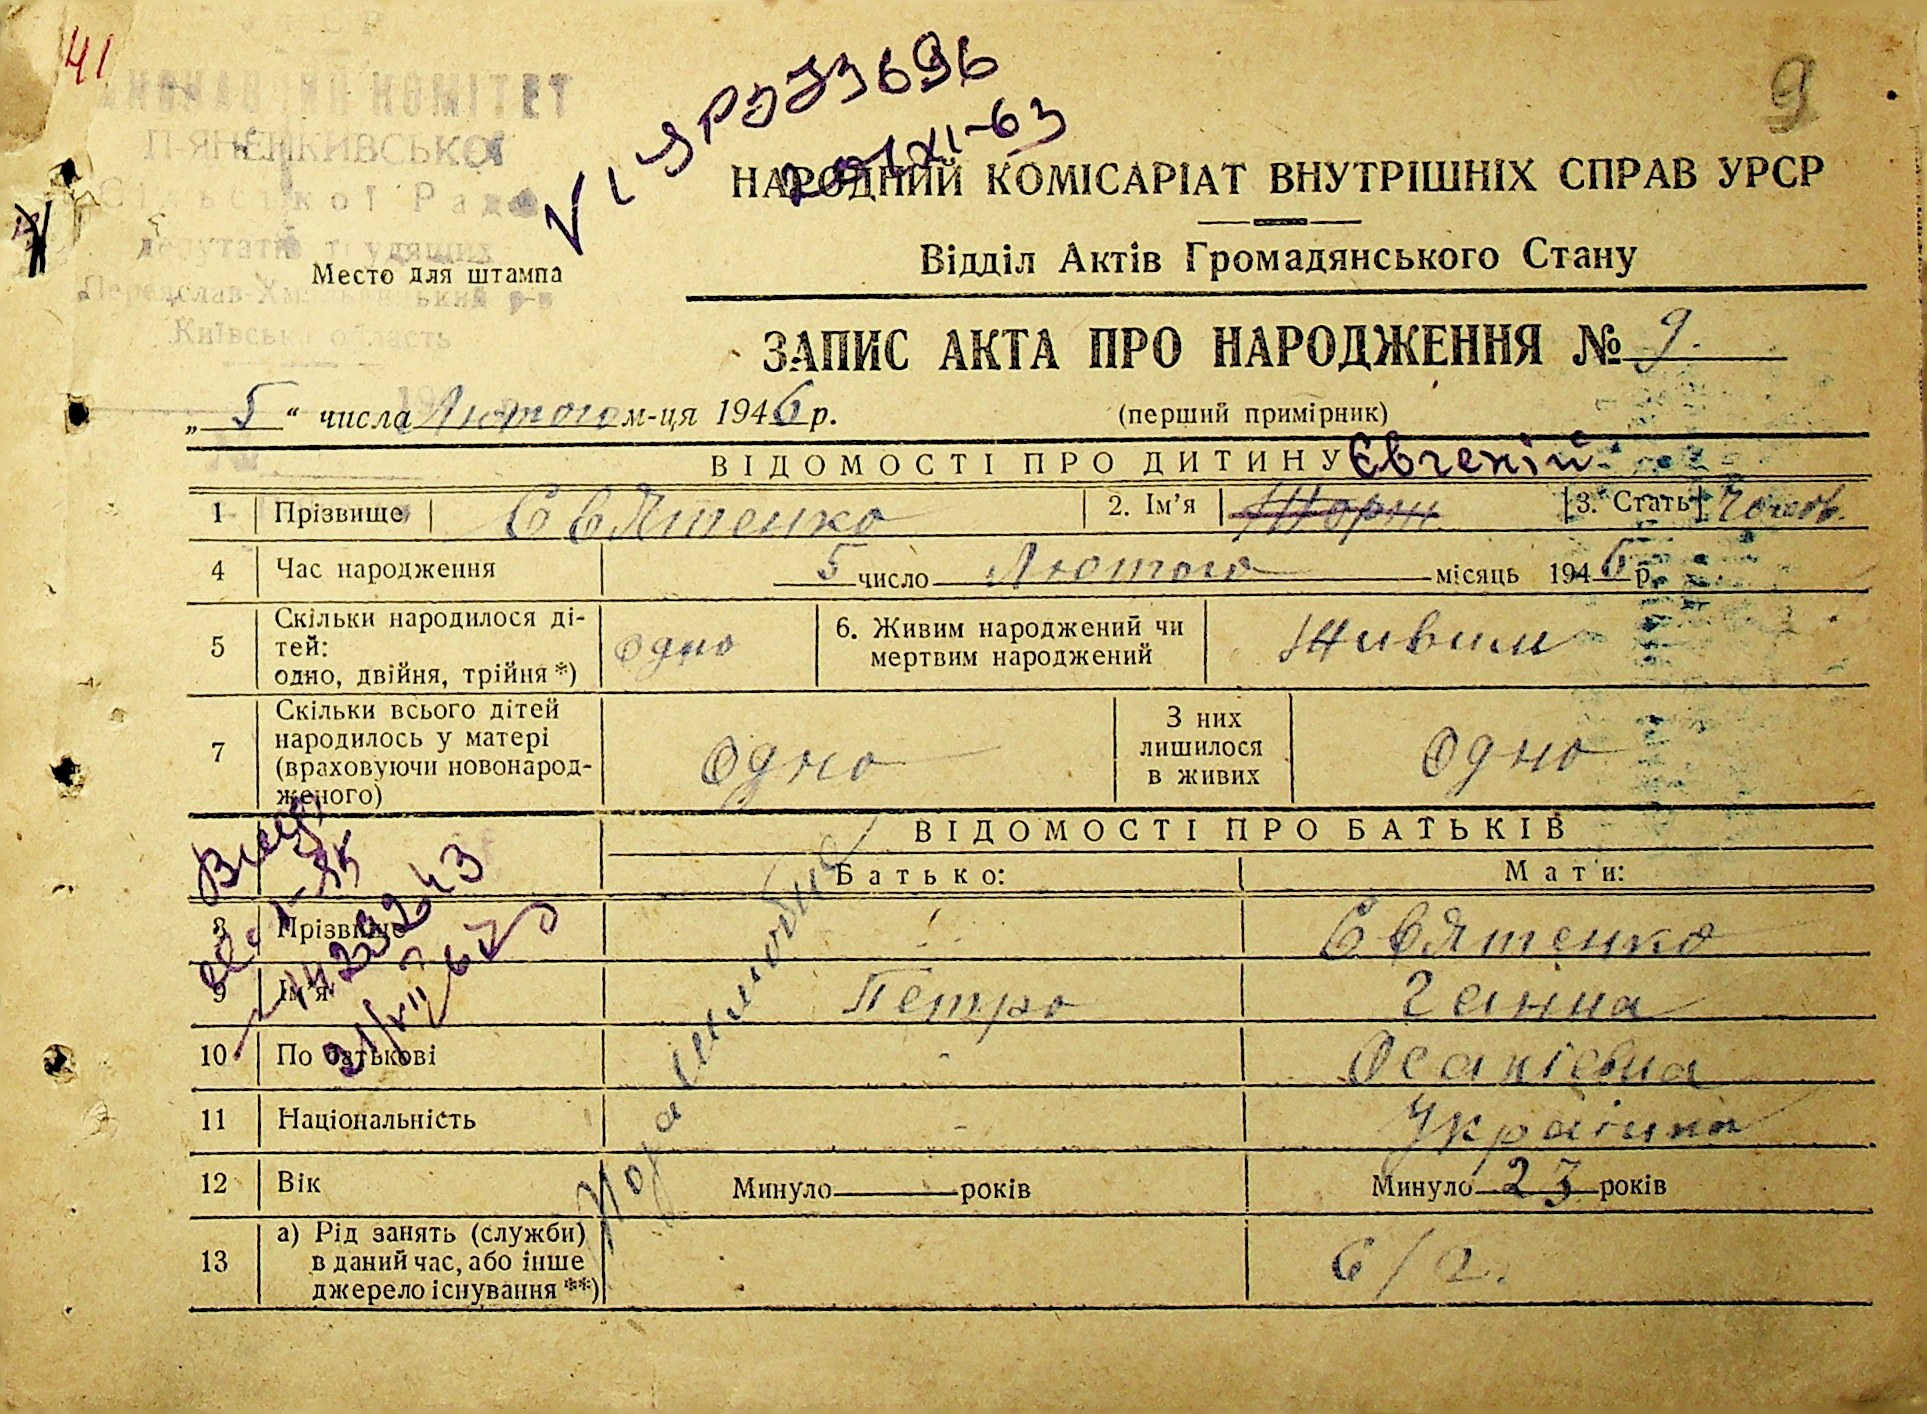 41
9
VI ЯР 373696
XI-63
НАРОДНИЙ КОМІСАРІАТ ВНУТРІШНІХ СПРАВ УРСР
Відділ Актів Громадянського Стану
КОМІТЕТ
Место для штампа
ЗАПИС АКТА ПРО НАРОДЖЕННЯ № 9.
„ 5 “ числа Лютого м-ця 1946 р.
(перший примірник)
ВІДОМОСТІ ПРО ДИТИНУ Євгеній
1 Прізвище Євятенко 2. Ім'я Жорж 3. Стать Чолов.
4 Час народження 5 число Лютого місяць 1946 р.
5 Скільки народилося ді-
тей:
одно, двійня, трійня *) одно 6. Живим народжений чи
мертвим народжений Живим
7 Скільки всього дітей
народилось у матері
(враховуючи новонарод-
женого) Одно З них
лишилося
в живих Одно
ВІДОМОСТІ ПРО БАТЬКІВ
Батько: Мати:
8 Прізвище Євятенко
9 Ім'я Петро Ганна
10 По батькові
11 Національність Українка
12 Вік Минуло років Минуло 23 років
13 а) Рід занять (служби)
в даний час, або інше
джерело існування **)